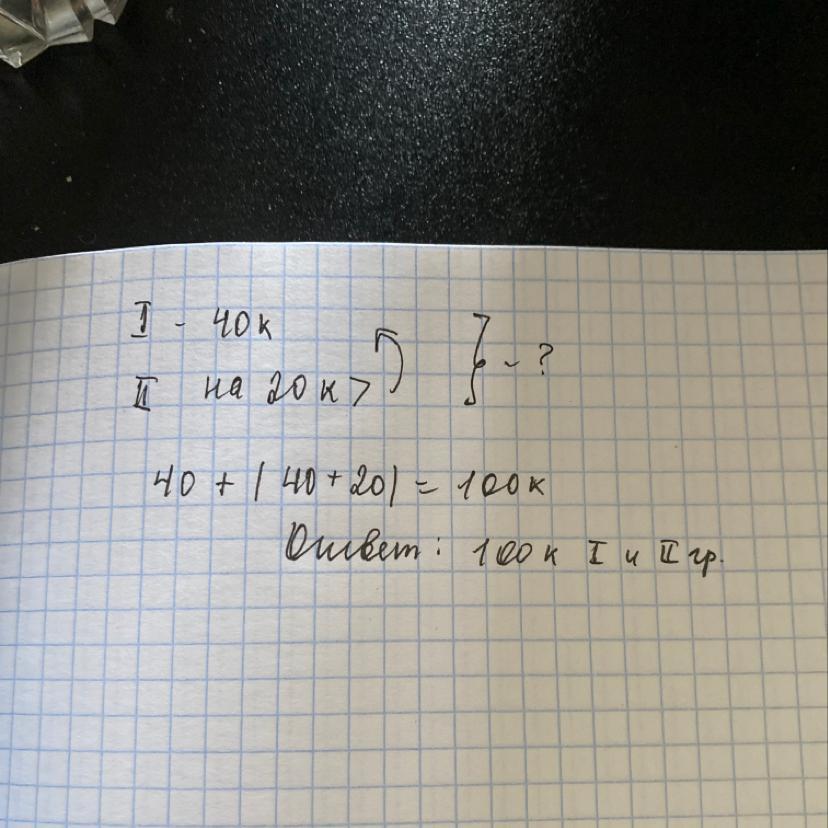 I - 40к
II на 20 к > } - ?
40 + (40+20) = 100к
Ответ: 100к I и II гр.